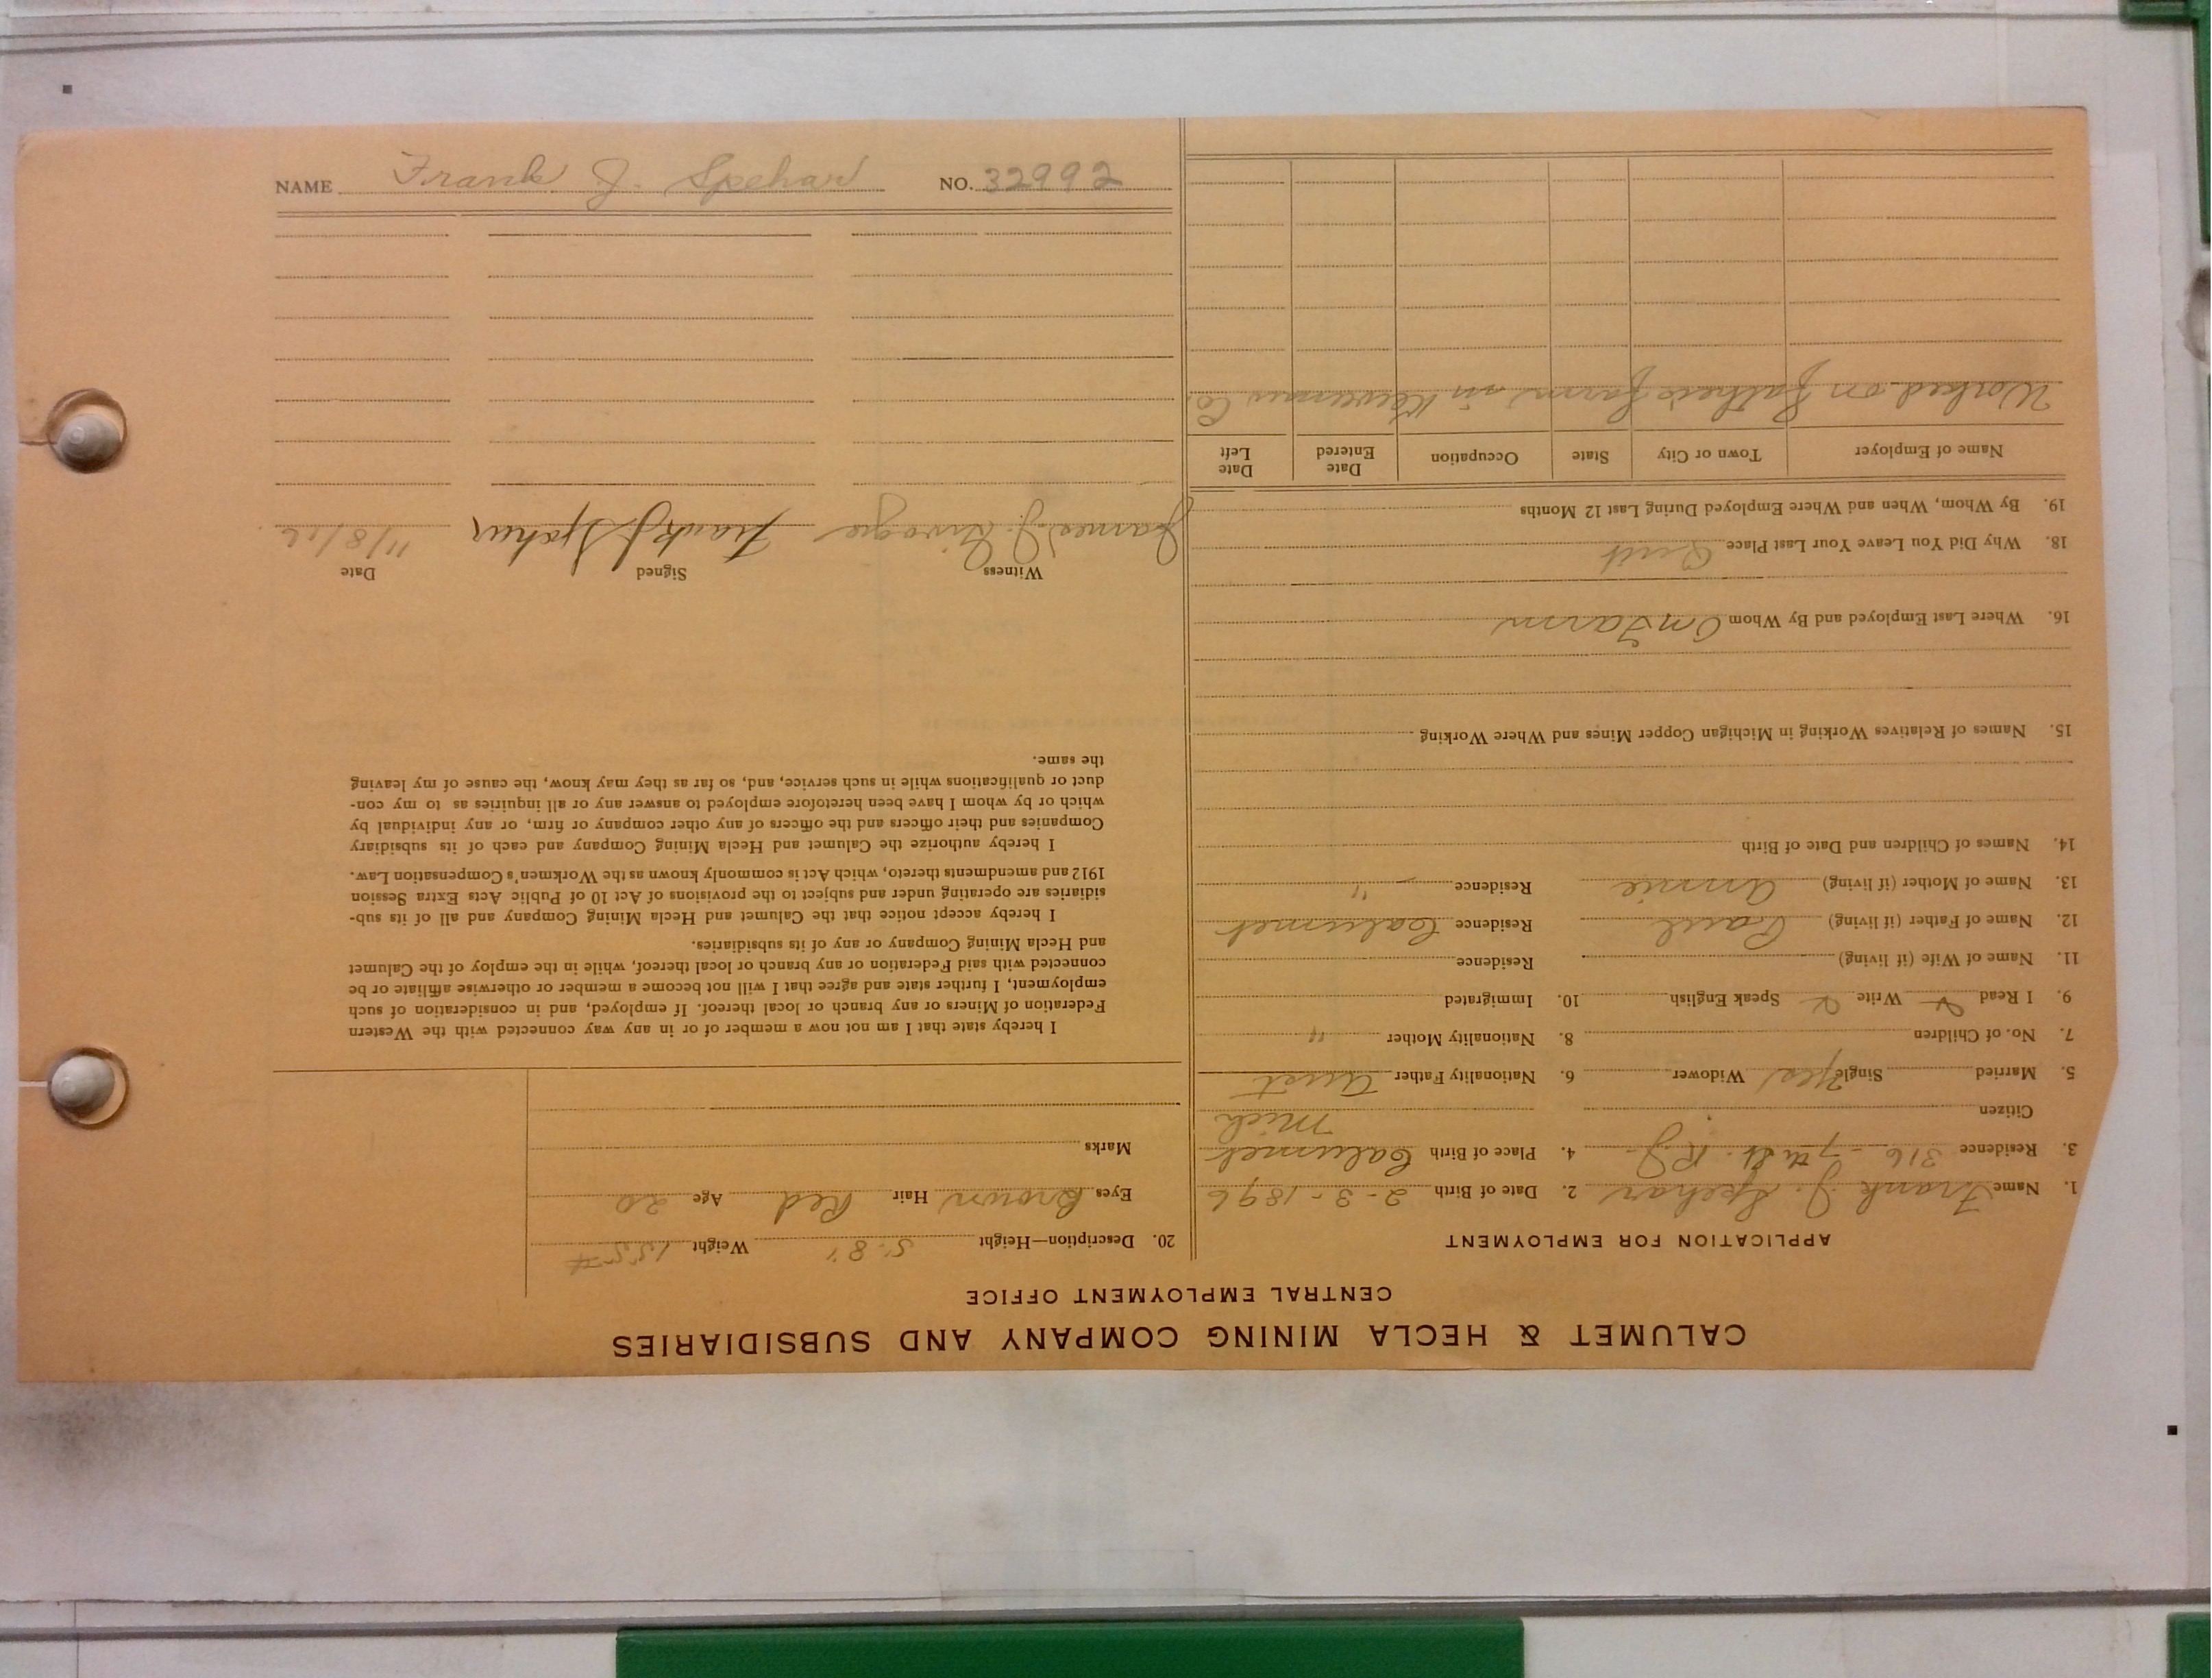 CALUMET & HECLA MINING COMPANY AND SUBSIDIARIES
CENTRAL EMPLOYMENT OFFICE
APPLICATION FOR EMPLOYMENT
1. Name Frank J. Spehar 2. Date of Birth 2-3-1896
3. Residence 316-7th St. R.J. 4. Place of Birth Calumet
Mich
Citizen
5. Married Single Yes Widower 6. Nationality Father Aust
7. No. of Children 8. Nationality Mother "
9. I Read Write Speak English 10. Immigrated
11. Name of Wife (if living) Residence
12. Name of Father (if living) Paul Residence Calumet
13. Name of Mother (if living) Annie Residence "
14. Names of Children and Date of Birth
15. Names of Relatives Working in Michigan Copper Mines and Where Working
16. Where Last Employed and By Whom On Farm
18. Why Did You Leave Your Last Place Quit
19. By Whom, When and Where Employed During Last 12 Months
Name of Employer Town or City State Occupation Date Entered Date Left
Worked on father's farm in Keweenaw Co.
20. Description—Height 5-8" Weight 155#
Eyes Brown Hair Red Age 20
Marks
I hereby state that I am not now a member of or in any way connected with the Western
Federation of Miners or any branch or local thereof. If employed, and in consideration of such
employment, I further state and agree that I will not become a member or otherwise affiliate or be
connected with said Federation or any branch or local thereof, while in the employ of the Calumet
and Hecla Mining Company or any of its subsidiaries.
I hereby accept notice that the Calumet and Hecla Mining Company and all of its sub-
sidiaries are operating under and subject to the provisions of Act 10 of Public Acts Extra Session
1912 and amendments thereto, which Act is commonly known as the Workmen's Compensation Law.
I hereby authorize the Calumet and Hecla Mining Company and each of its subsidiary
Companies and their officers and the officers of any other company or firm, or any individual by
which or by whom I have been heretofore employed to answer any or all inquiries as to my con-
duct or qualifications while in such service, and, so far as they may know, the cause of my leaving
the same.
Witness Signed Date
James J. Frank J. Spehar 11/8/16
NAME Frank J. Spehar NO. 32992